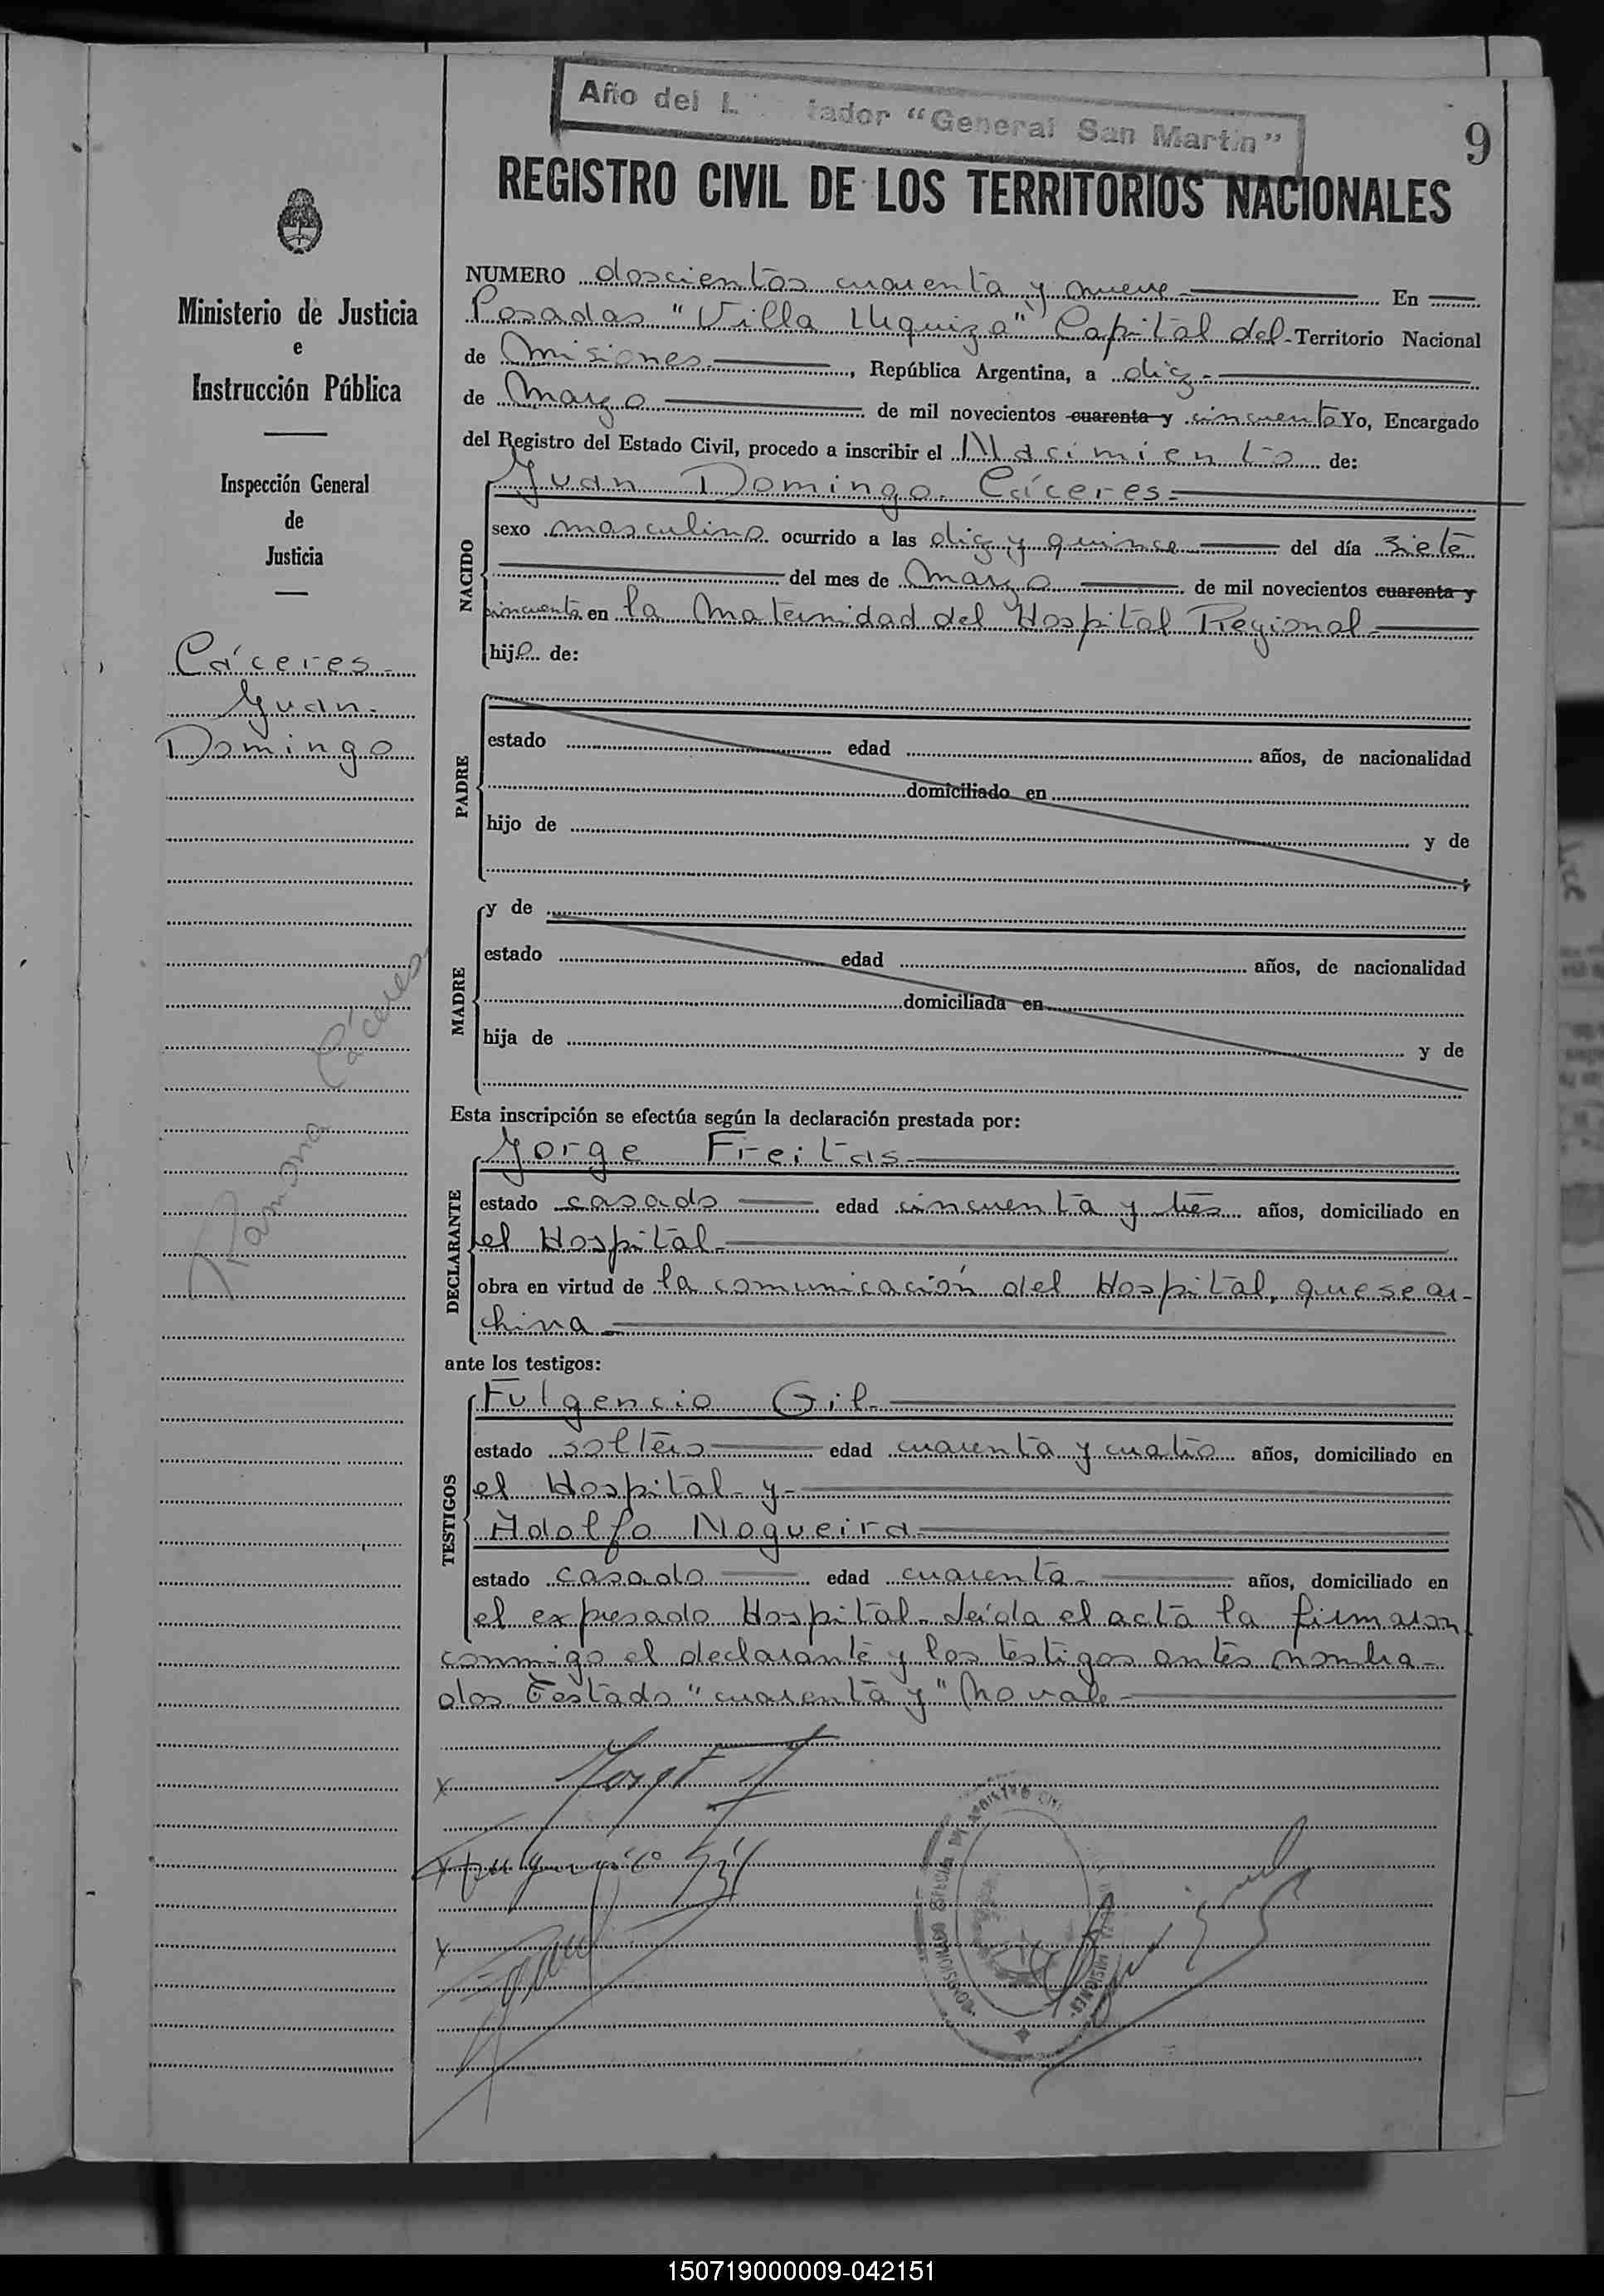 Año del L tador "General San Martin"
9
REGISTRO CIVIL DE LOS TERRITORIOS NACIONALES
Ministerio de Justicia
e
Instrucción Pública
Inspección General
de
Justicia
Cáceres-
Juan-
Domingo
Ramona Cáceres-
NUMERO doscientos cuarenta y nueve- En
Posadas "Villa Urquiza" Capital del-Territorio Nacional
de Misiones-, República Argentina, a diez-
de Marzo de mil novecientos cuarenta y cincuenta Yo, Encargado
del Registro del Estado Civil, procedo a inscribir el Nacimiento de:
NACIDO
Juan Domingo Cáceres-
sexo masculino ocurrido a las diez y quince del día siete
del mes de Marzo de mil novecientos cuarenta y
cincuenta en la Maternidad del Hospital Regional-
hijo de:
PADRE
estado edad años, de nacionalidad
domiciliado en
hijo de y de
;
MADRE
y de
estado edad años, de nacionalidad
domiciliada en
hija de y de
Esta inscripción se efectúa según la declaración prestada por:
DECLARANTE
Jorge Freitas-
estado casado edad cincuenta y tres años, domiciliado en
el Hospital-
obra en virtud de la comunicación del Hospital, que se ar-
chiva-
ante los testigos:
TESTIGOS
Fulgencio Gil-
estado soltero edad cuarenta y cuatro años, domiciliado en
el Hospital- y-
Adolfo Nogueira-
estado casado edad cuarenta- años, domiciliado en
el expresado Hospital- Leída el acta la firmaron
conmigo el declarante y los testigos antes nombra-
dos Testado "cuarenta y" No vale-
x Jorge F
x Fulgencio Gil
x
150719000009-042151